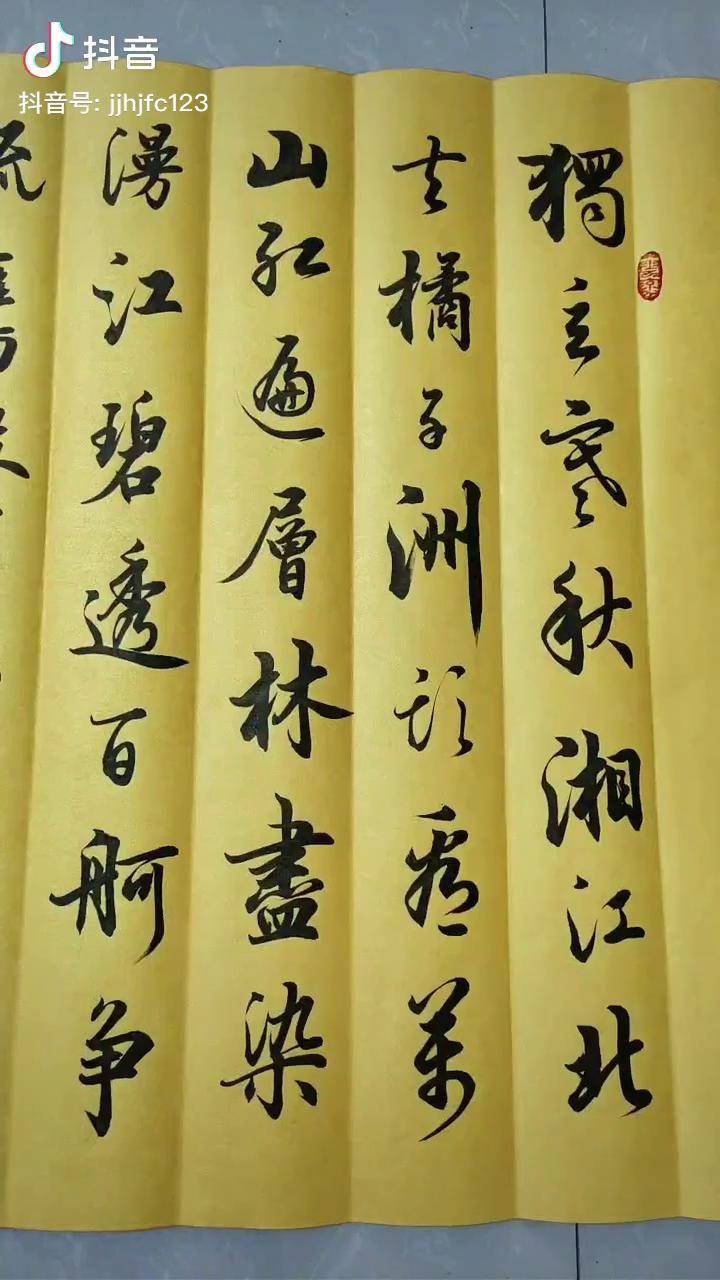 抖音
抖音号: jjhjfc123
獨立寒秋湘江北
去橘子洲頭看萬
山紅遍層林盡染
漫江碧透百舸争
流